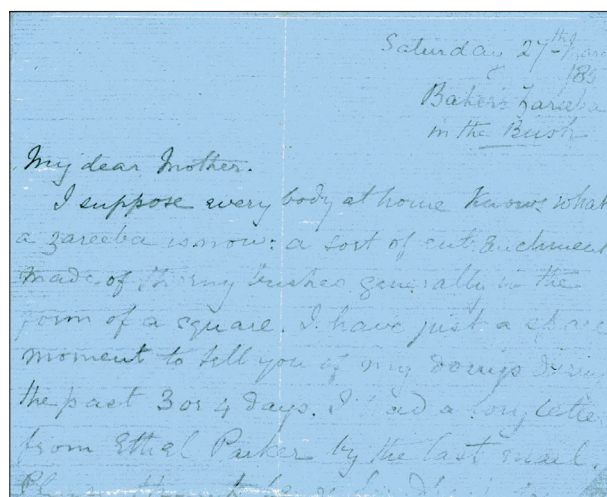 Saturday 27th
Baker's Zareeba
in the Bush
My dear Mother.
I suppose every body at home knows what
a zareeba is now: a sort of entrenchment
made of thorny bushes generally in the
form of a square. I have just a spare
moment to tell you of my doings during
the past 3 or 4 days. I had a long letter
from Ethel Parker by the last mail.